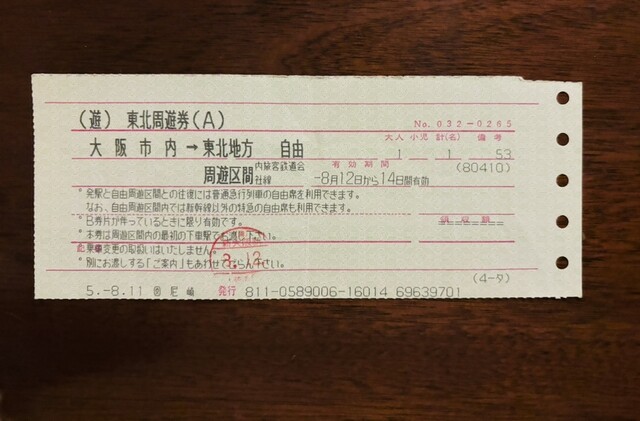 (遊) 東北周遊券(A)
No. 032-0265
大人 小児 計(名) 備考
大阪市内→東北地方 自由
1 1 53
有効期間
(80410)
周遊区間 内旅客鉄道会社線
-8月12日から14日間有効
*発駅と自由周遊区間との往復には普通急行列車の自由席を利用できます。
なお、自由周遊区間内では新幹線以外の特急の自由席も利用できます。
*B券片が伴っているときに限り有効です。
領収額
*本券は周遊区間内の最初の下車駅でお渡し下さい。
*乗車変更の取扱いはいたしません。
*別にお渡しする「ご案内」もあわせてごらん下さい。
(4-タ)
5.-8.11 尼崎 発行 811-0589006-16014 69639701